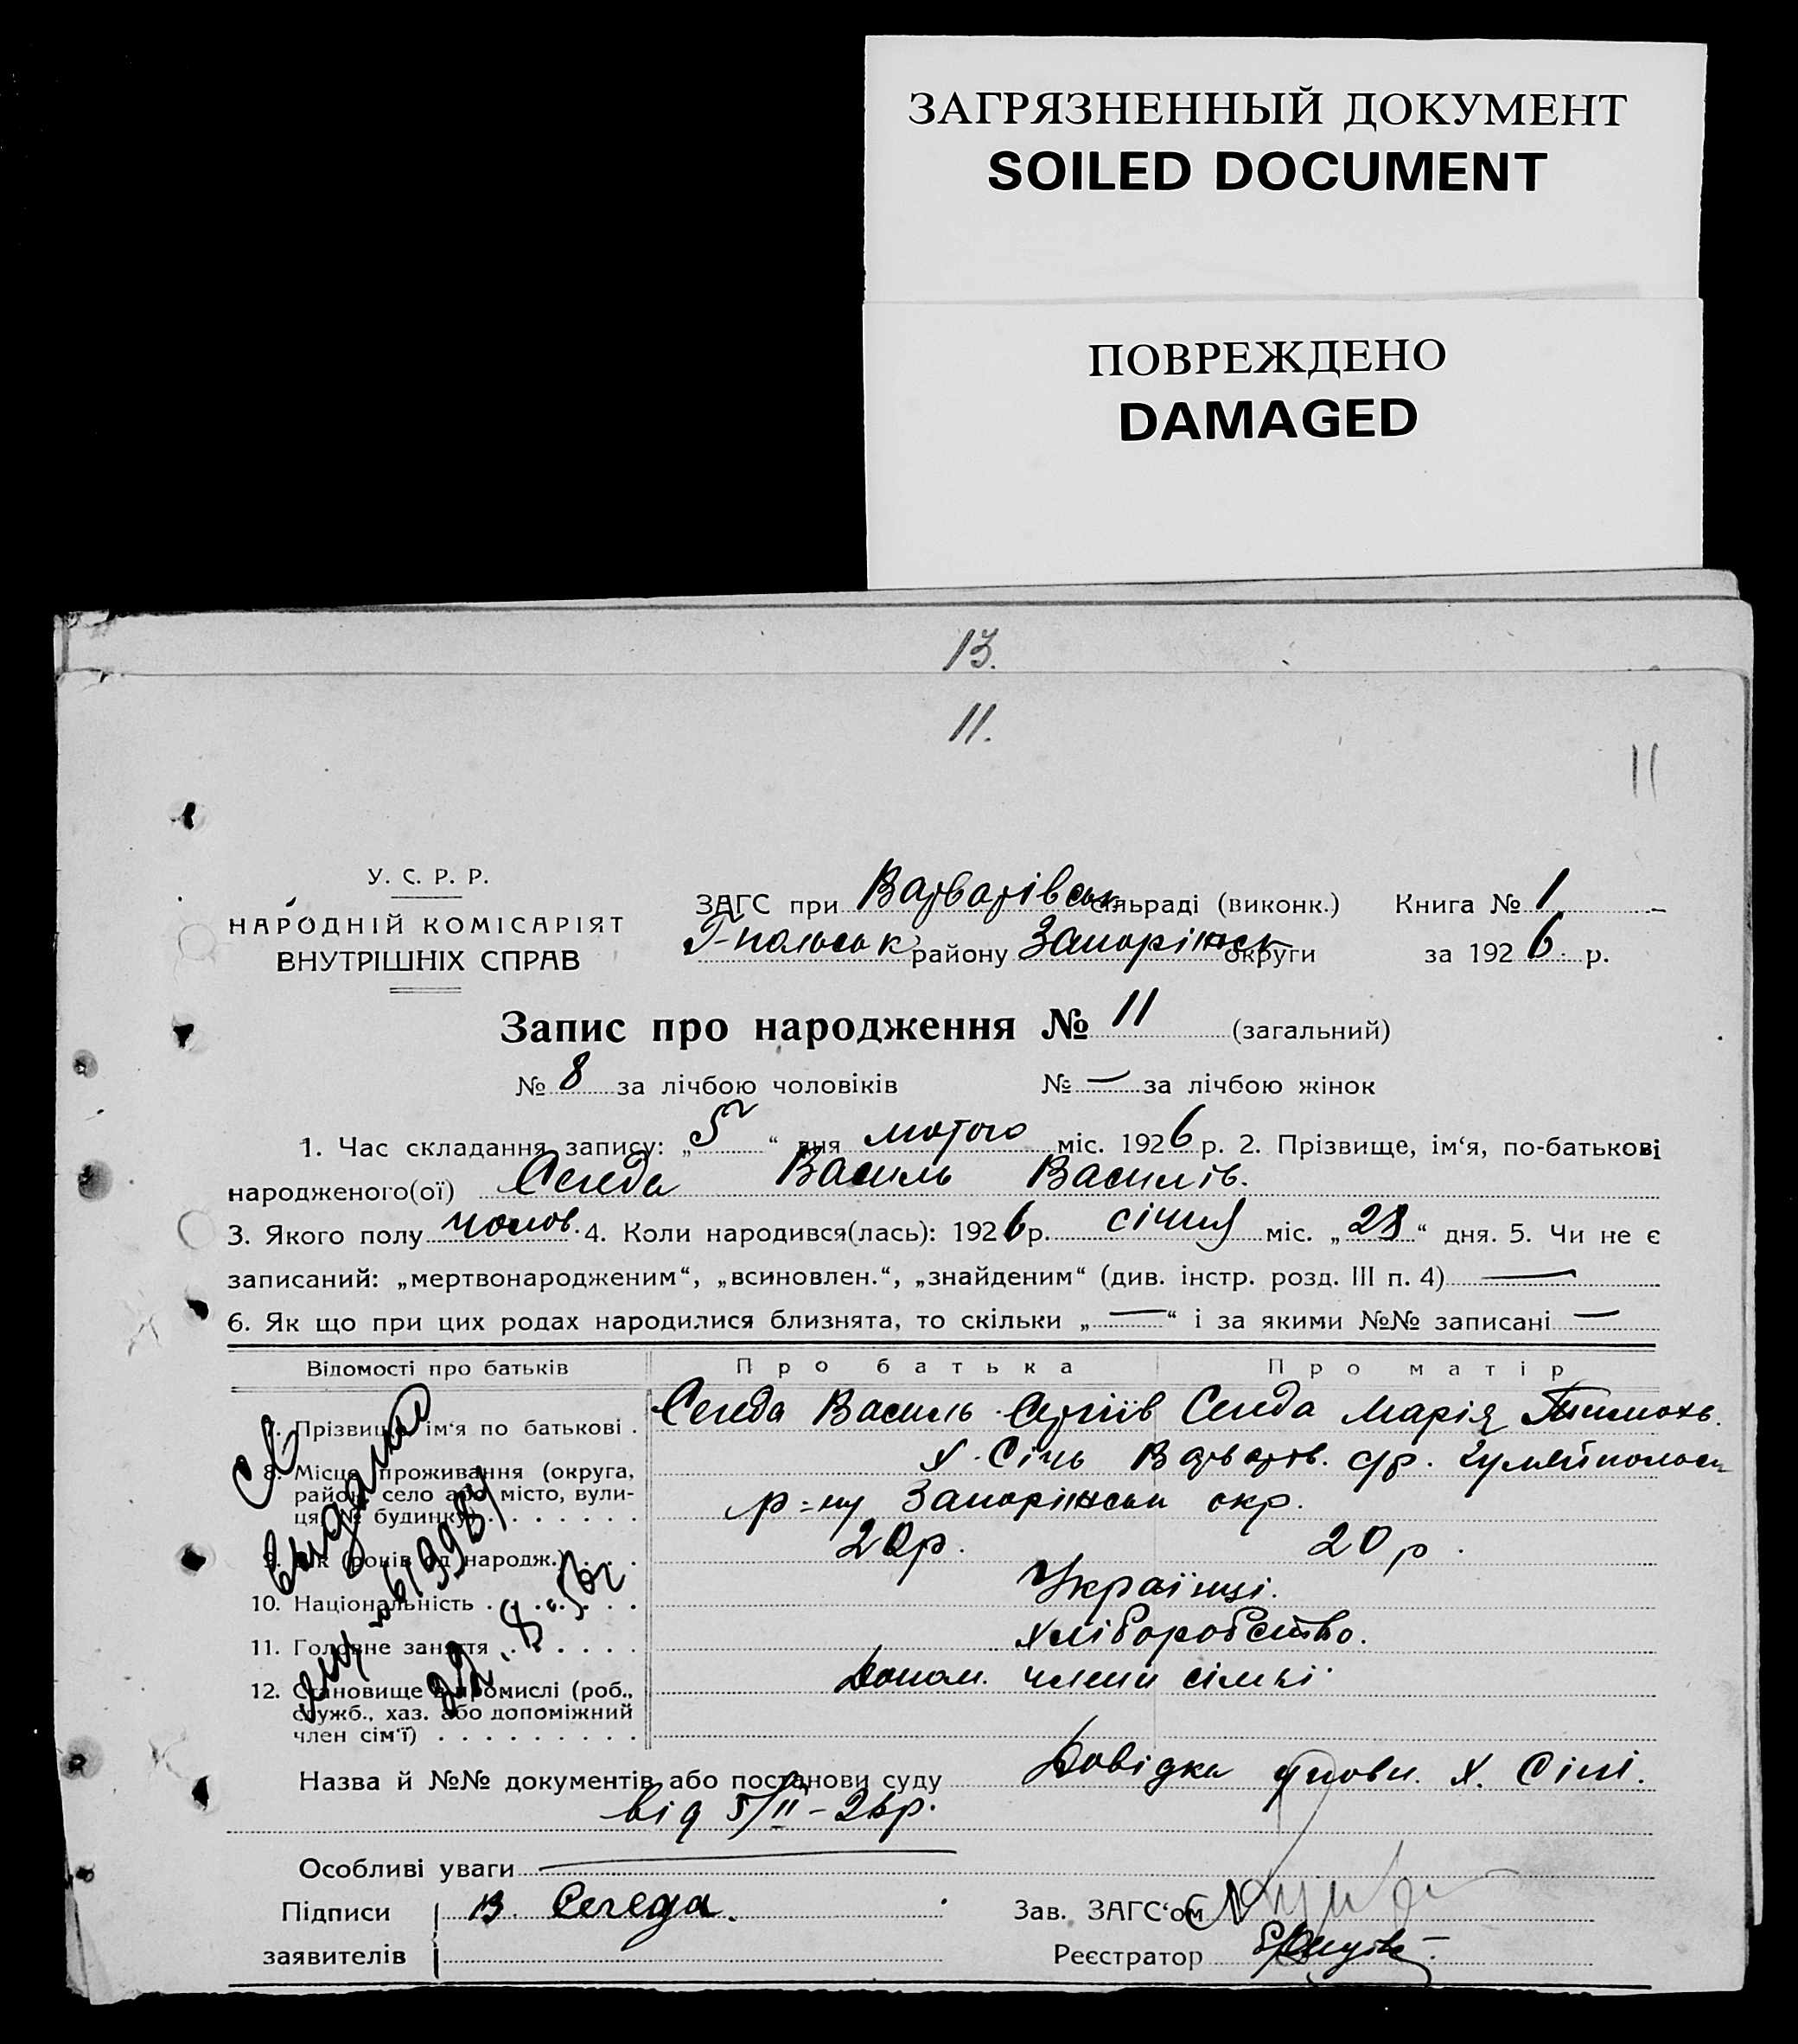 ЗАГРЯЗНЕННЫЙ ДОКУМЕНТ
SOILED DOCUMENT
ПОВРЕЖДЕНО
DAMAGED
13.
11.
11
У. С. Р. Р.
НАРОДНІЙ КОМІСАРІЯТ
ВНУТРІШНІХ СПРАВ
ЗАГС при Варварівськ сільраді (виконк.) Книга № 1
Г-польськ району Запоріжськ округи за 1926 р.
Запис про народження № 11 (загальний)
№ 8 за лічбою чоловіків № — за лічбою жінок
1. Час складання запису: „5“ дня лютого міс. 1926 р. 2. Прізвище, ім‘я, по-батькові
народженого(ої) Середа Василь Василів.
3. Якого полу чолов. 4. Коли народився(лась): 1926 р. січня міс. „28“ дня. 5. Чи не є
записаний: „мертвонародженим“, „всиновлен.“, „знайденим“ (див. інстр. розд. III п. 4) —
6. Як що при цих родах народилися близнята, то скільки „—“ і за якими №№ записані —
Відомості про батьків Про батька Про матір
7. Прізвище ім‘я по батькові . Середа Василь Сергіїв Середа Марія Тимохв.
8. Місце проживання (округа, х. Січь Варварів. с/р. Гуляйпольськ
район, село або місто, вули-
ця, № будинку) . . . . . . . р-ну Запоріжськ окр.
9. Вік (років од народж.) . . . 20 р. 20 р.
10. Національність . . . . . . . Українці.
11. Головне заняття . . . . . . хліборобство.
12. Становище в промислі (роб., Допом. члени сімьї
служб., хаз. або допоміжний
член сім‘ї) . . . . . . . . .
выдано
29. 8. 53 г
Назва й №№ документів або постанови суду Довідка уповн. х. Січі.
від 5/II-26р.
Особливі уваги —
Підписи В. Середа. Зав. ЗАГС‘ом
заявителів Реєстратор